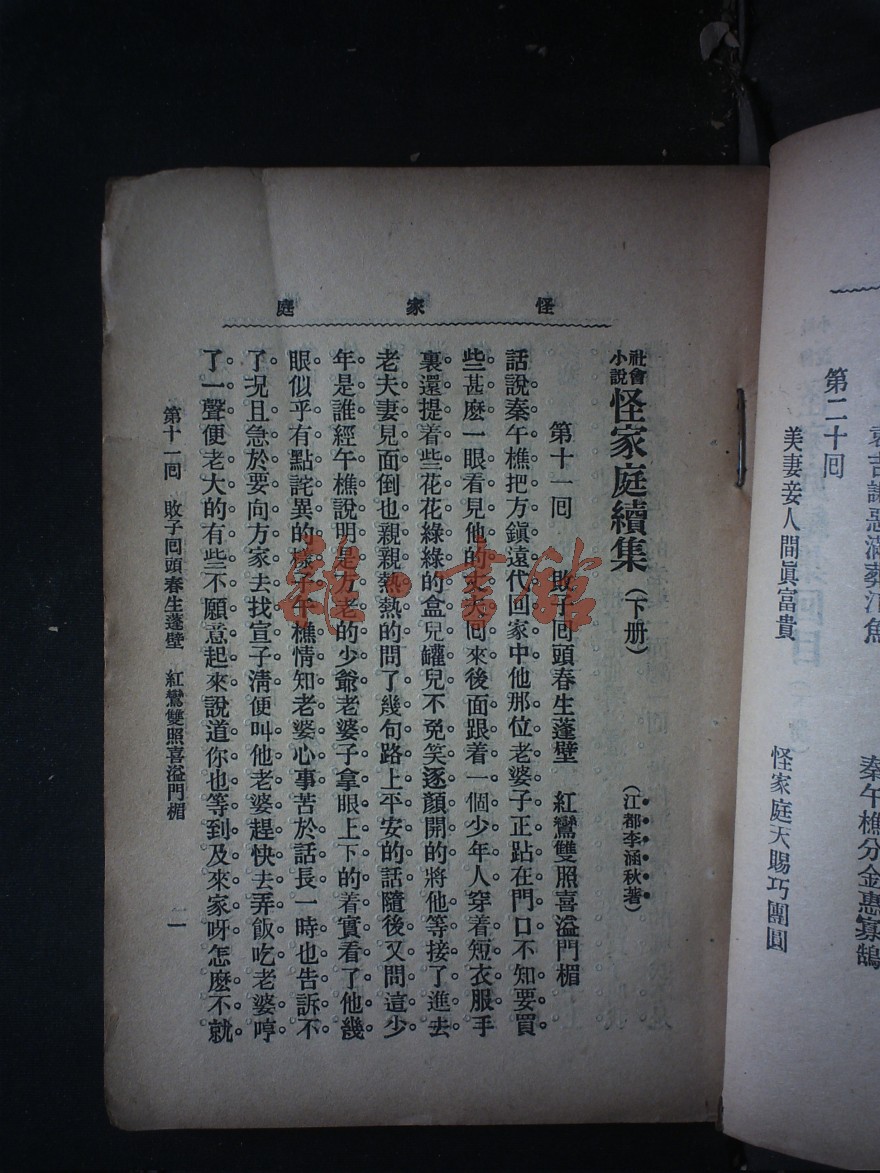 袁吉謀惡滿葬江魚
秦午樵分金憑寡鵠
第二十囘
美妻妾人間眞富貴
怪家庭天賜巧團圓
怪家庭
社會小說 怪家庭續集（下册）
（江都李涵秋著）
第十一囘 敗子囘頭春生蓬壁 紅鸞雙照喜溢門楣
話說秦午樵把方鎭遠代回家中他那位老婆子正跕在門口不知要買
些甚麼一眼看見他的丈夫囘來後面跟着一個少年人穿着短衣服手
裏還提着些花花綠綠的盒兒罐兒不免笑逐顏開的將他等接了進去
老夫妻見面倒也親親熱熱的問了幾句路上平安的話隨後又問這少
年是誰經午樵說明是方老的少爺老婆子拿眼上下的着實看了他幾
眼似乎有點詫異的樣子午樵情知老婆心事苦於話長一時也告訴不
了况且急於要向方家去找宣子淸便叫他老婆趕快去弄飯吃老婆哼
了一聲便老大的有些不願意起來說道你也等到及來家呀怎麼不就
第十一囘 敗子囘頭春生蓬壁 紅鸞雙照喜溢門楣
一
雜·書館